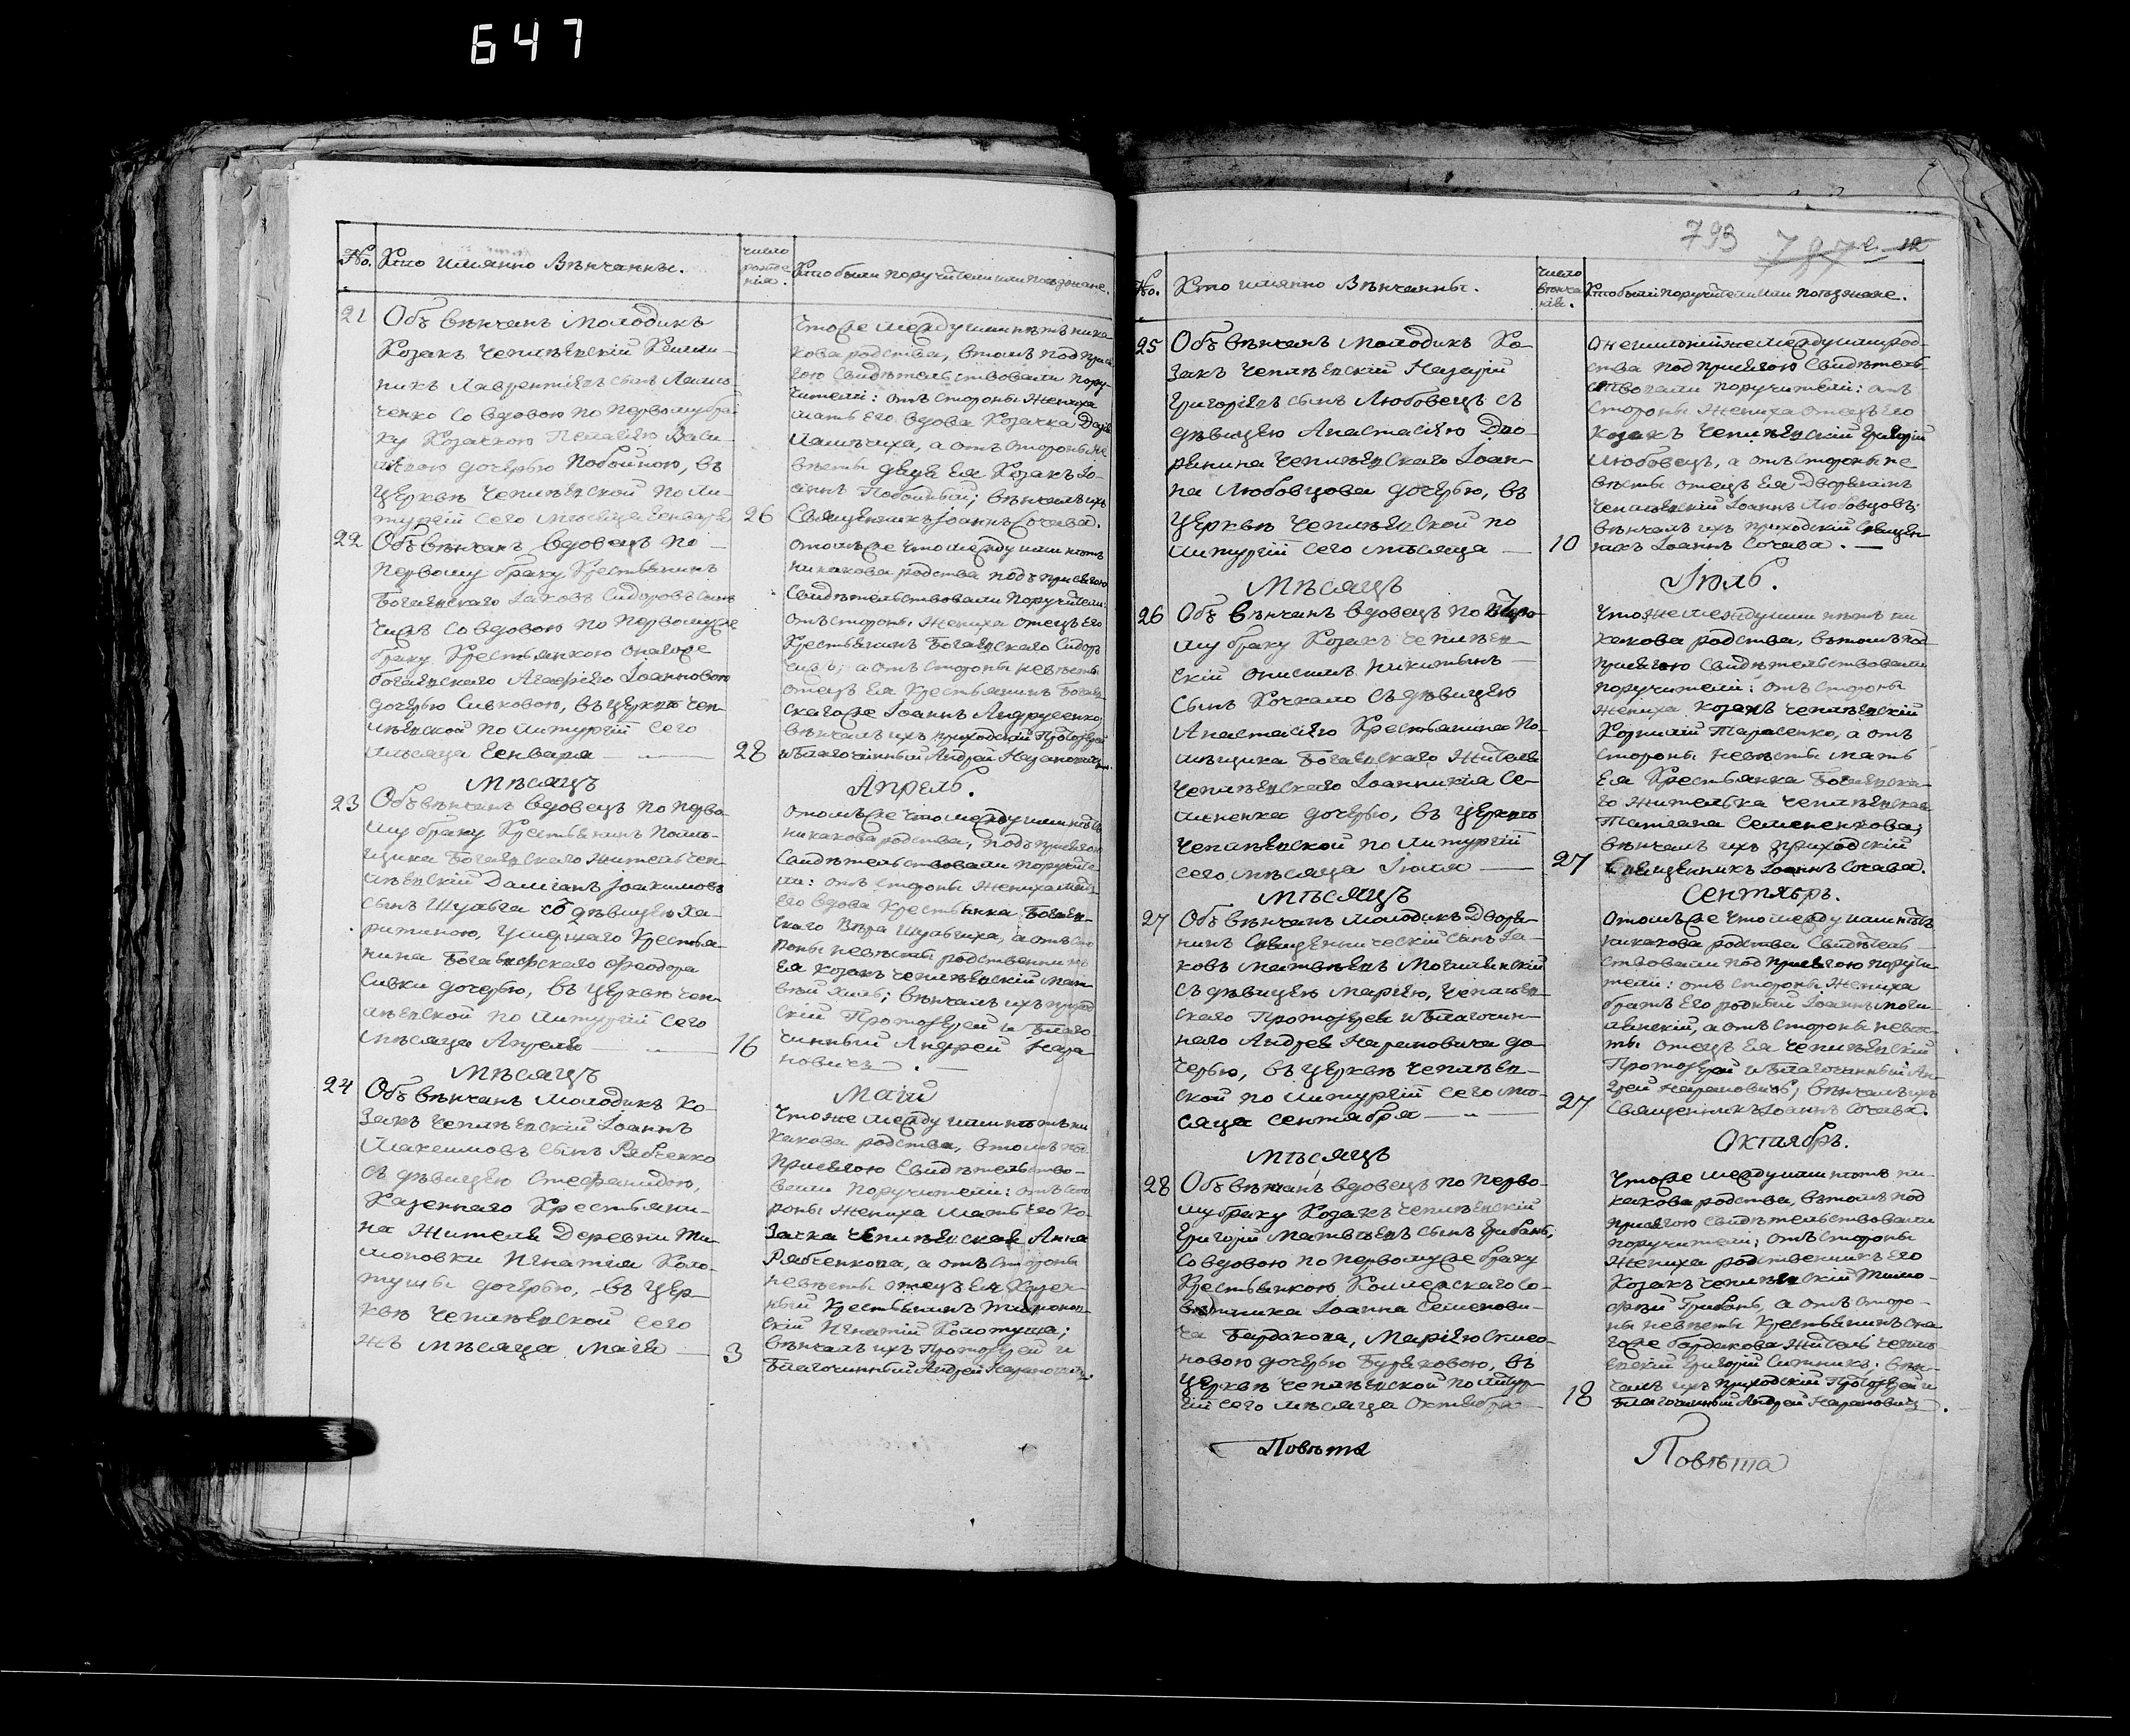 647
No.
Кто имянно Вѣнчанны.
число рожде нія.
Кто были поручители или поѣзжане.
21
Объ вѣнчанъ молодикъ
Козакъ Чеплѣевскій
никъ Лаврентіевъ сынъ
ченко со вдовою по первому бра
ку Козачкою Пелагіею Васи-
дочерью Побойною, въ
Церквѣ Чеплѣевской по ли-
тургіи сего мѣсяца Генваря
26
Чтоже между ими нѣтъ ника-
кова родства, втомъ под прися
гою свидѣтельствовали пору-
чители: отъ стороны жениха
мать его вдова Козачка
а отъ стороны не
вѣсты дядя ея Козакъ Іо-
аннъ Побойный; вѣнчалъ ихъ
Священникъ Іоаннъ Сочава.
22
Объ вѣнчанъ вдовецъ по
первому браку Крестьянинъ
Богаевскаго Іаковъ Сидоровъ сынъ
Чижъ со вдовою по первому же
браку Крестьянкою онагоже
Богаевскаго Агафіею Іоанновою
дочерью Сивковою, въ церквѣ Чеп-
лѣевской по литургіи сего
мѣсяца Генваря
28
отомже что между ими нѣтъ
никакова родства подъ присягою
Свидѣтельствовали поручители:
отъ стороны жениха отецъ его
Крестьянинъ Богаевскаго Сидоръ
Чижъ; а отъ стороны невѣсты
отецъ ея Крестьянинъ Богаев-
скагоже Іоаннъ Андрусенко,
вѣнчалъ ихъ приходскій Протоіерей
и Благочинный Андрей Нарановичъ.
Мѣсяцъ
Апрель.
23
Объ вѣнчанъ вдовецъ по перво-
му браку Крестьянинъ Помѣ-
щика Богаевскаго житель Чеп-
лѣевскій Даміанъ Іоакимовъ
сынъ Шульга съ дѣвицею Ха-
ритиною, умершаго Крестья-
нина Богаевскаго Феодора
Сивки дочерью, въ церквѣ Чеп-
лѣевской по литургіи сего
мѣсяца Апреля
16
отомже что между ими нѣтъ
никакова родства, подъ присягою
Свидѣтельствовали поручите
ли: отъ стороны жениха мать
его вдова Крестьянка Богаев-
скаго Вѣра Шульгиха, а отъ сто
роны невѣсты родственникъ
ея козакъ Чеплѣевскій Мат-
вѣй Хиль; вѣнчалъ ихъ приход
скій Протоіерей и Благо-
чинный Андрей Нара
новичъ.
Мѣсяцъ
Маій
24
Объ вѣнчанъ молодикъ Ко-
закъ Чеплѣевскій Іоаннъ
Максимовъ сынъ Рябченко
съ дѣвицею Стефанидою,
Казеннаго Крестьяни-
на жителя Деревни Ти-
моновки Игнатія Коло-
туши дочерью, въ Цер-
квѣ Чеплѣевской сего
жъ мѣсяца Маія
3
Чтоже между ими нѣтъ ни
какова родства, втомъ под
присягою Свидѣтельство-
вали поручители: отъ сто
роны жениха мать его Ко-
зачка Чеплѣевская Анна
Рябченкова, а отъ стороны
невѣсты отецъ ея Казен-
ный Крестьянинъ Тимонов
скій Игнатій Колотуша;
вѣнчалъ ихъ Протоіерей и
Благочинный Андрей Нарановичъ.
793
12
No.
Кто имянно Вѣнчанны.
число вѣнча нія.
Кто были поручители или поѣзжане.
25
Объ вѣнчанъ молодикъ Ко-
закъ Чеплѣевскій Назарій
Григоріевъ сынъ Любовецъ съ
дѣвицею Анастасіею Дво-
рянина Чеплѣевскаго Іоан-
на Любовцова дочерью, въ
Церквѣ Чеплѣевской по
литургіи сего мѣсяца
10
между ими род-
ства под присягою Свидѣтель-
ствовали поручители: отъ
стороны жениха отецъ его
козакъ Чеплѣевскій Григорій
Любовецъ, а отъ стороны не
вѣсты отецъ ея дворянинъ
Чеплѣевскій Іоаннъ Любовцовъ;
вѣнчалъ ихъ приходскій Священ-
никъ Іоаннъ Сочава.
Мѣсяцъ
Іюль.
26
Объ вѣнчанъ вдовецъ по перво-
му браку Козакъ Чеплѣев-
скій Онисимъ Никитинъ
сынъ Кочкало съ дѣвицею
Анастасіею Крестьянина По-
мѣщика Богаевскаго жителя
Чеплѣевскаго Іоанникія Се-
мененка дочерью, въ церквѣ
Чеплѣевской по литургіи
сего мѣсяца Іюля
27
Чтоже между ими нѣтъ ни
какова родства, втомъ под
присягою Свидѣтельствовали
поручители: отъ стороны
жениха козакъ Чеплѣевскій
Корнилій Тарасенко, а отъ
стороны невѣсты мать
ея Крестьянка Богаевска-
го жителька Чеплѣевская
Татіана Семененкова;
вѣнчалъ ихъ приходскій
Священникъ Іоаннъ Сочава.
Мѣсяцъ
Сентябрь.
27
Объ вѣнчанъ молодикъ Дворя-
нинъ Священническій сынъ Іа-
ковъ Матвѣевъ Могилевскій
съ дѣвицею Маріею, Чеплѣев-
скаго Протоіерея и Благочин-
наго Андрея Нарановича до-
черью, въ церквѣ Чеплѣев-
ской по литургіи сего мѣ-
сяца Сентября
27
Отомже что между ими нѣтъ
никакова родства Свидѣтель-
ствовали под присягою поручи
тели: отъ стороны жениха
братъ его родный Іоаннъ Моги-
левскій, а отъ стороны невѣс-
ты отецъ ея Чеплѣевскій
Протоіерей и Благочинный Ан-
дрей Нарановичъ; вѣнчалъ ихъ
Священникъ Іоаннъ Сочава.
Мѣсяцъ
Октябрь.
28
Объ вѣнчанъ вдовецъ по перво-
му браку Козакъ Чеплѣевскій
Григорій Матвѣевъ сынъ Грибанъ,
со вдовою по первомуже браку
Крестьянкою Коллежскаго Со-
вѣтника Іоанна Семенови-
ча Бардакова, Маріею Симо-
новою дочерью Буряковою, въ
Церквѣ Чеплѣевской по литур-
гіи сего мѣсяца Октября
18
Чтоже между ими нѣтъ ни-
какова родства, втомъ под
присягою свидѣтельствовали
поручители: отъ стороны
жениха родственникъ его
Козакъ Чеплѣевскій Тимо-
фѣй Грибанъ, а отъ сторо-
ны невѣсты Крестьянинъ она
гоже Бардакова житель Чеплѣ
евскій Григорій Ситникъ; вѣн-
чалъ ихъ приходскій Протоіерей и
Благочинный Андрей Нарановичъ.
Повѣта
Повѣта